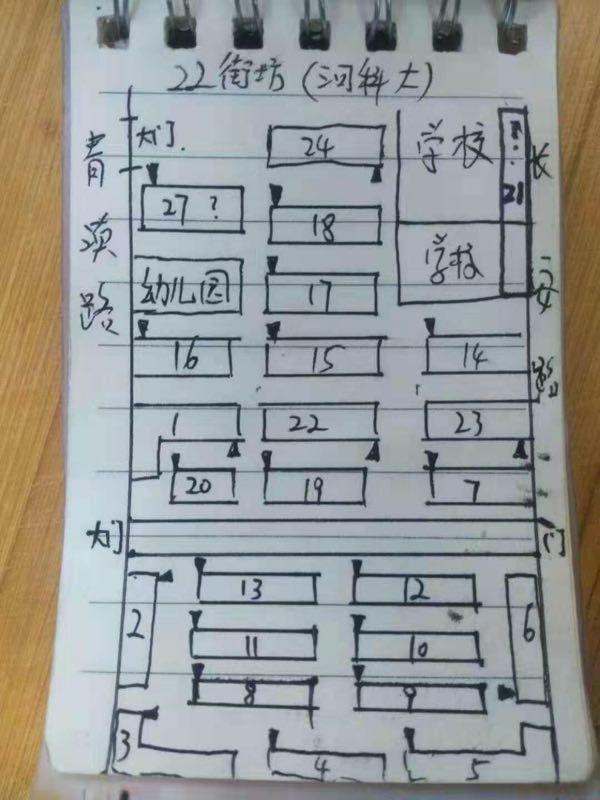 22街坊(河科大)
青项路
长安路
大门
24
学校
21
27?
18
学校
幼儿园
17
16
15
14
1
22
23
20
19
7
大门
门
13
12
2
6
11
10
8
9
3
4
5